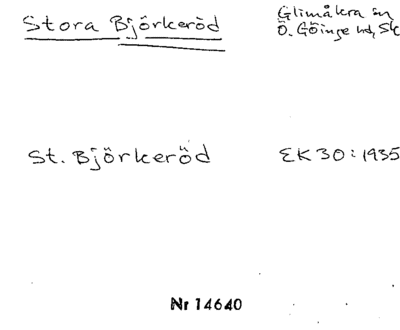 Stora Björkeröd
Glimåkra sn
Ö. Göinge hd, Sk
St. Björkeröd
EK30:1935
Nr 14640